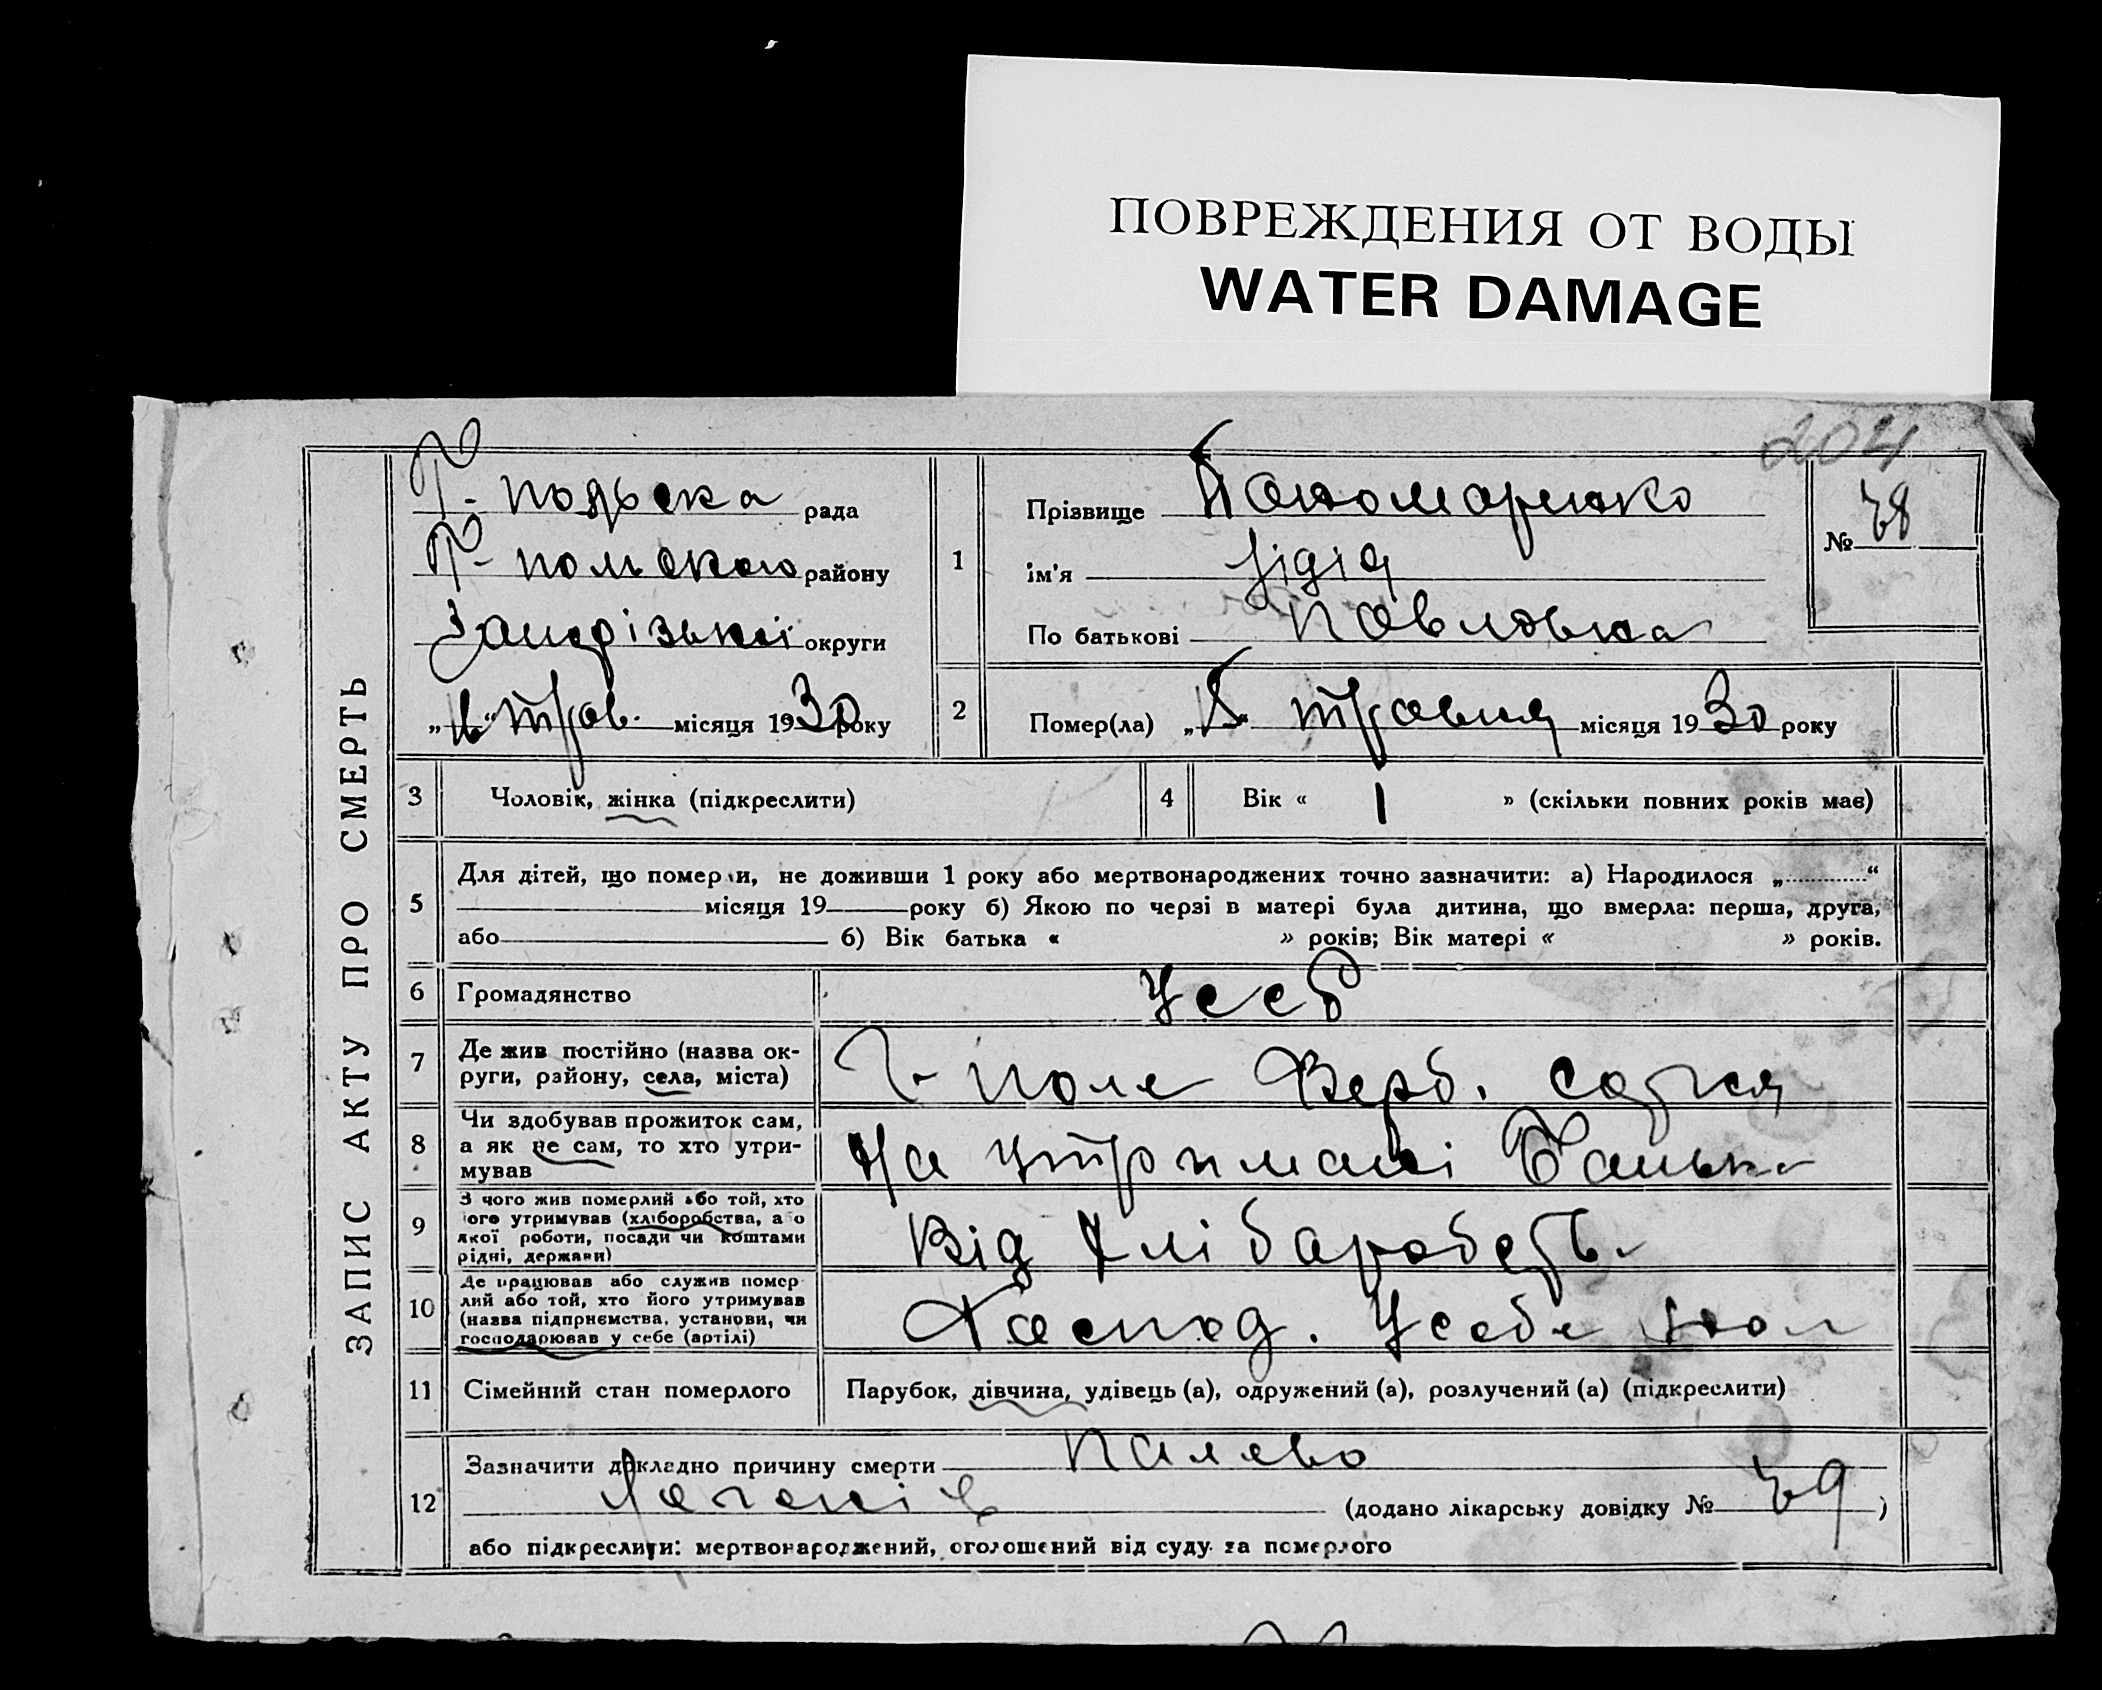 ПОВРЕЖДЕНИЯ ОТ ВОДЫ
WATER DAMAGE
204
ЗАПИС АКТУ ПРО СМЕРТЬ
Г-польска рада
Г-польского району
Запорізької округи
" " трав. місяця 1930 року
1
Прізвище Пономаренко
ім'я Лідія
По батькові Павловна
№ 38
2
Помер(ла) " " травня місяця 1930 року
3 Чоловік, жінка (підкреслити)
4 Вік « 1 » (скільки повних років має)
5 Для дітей, що померли, не доживши 1 року або мертвонароджених точно зазначити: а) Народилося „ “
місяця 19 року б) Якою по черзі в матері була дитина, що вмерла: перша, друга,
або б) Вік батька « » років; Вік матері « » років.
6 Громадянство УССР
7 Де жив постійно (назва ок-
руги, району, села, міста) Г-поле Верб. сотня
8 Чи здобував прожиток сам,
а як не сам, то хто утри-
мував На утримані Батька
9 З чого жив померлий або той, хто
його утримував (хліборобства, або
якої роботи, посади чи коштами
рідні, держави) Від
10 Де працював або служив помер
лий або той, хто його утримував
(назва підприємства, установи, чи
господарював у себе (артілі) Господ. У себе
11 Сімейний стан померлого Парубок, дівчина, удівець (а), одружений (а), розлучений (а) (підкреслити)
12 Зазначити докладно причину смерти
(додано лікарську довідку № 39)
або підкреслити: мертвонароджений, оголошений від суду за померлого